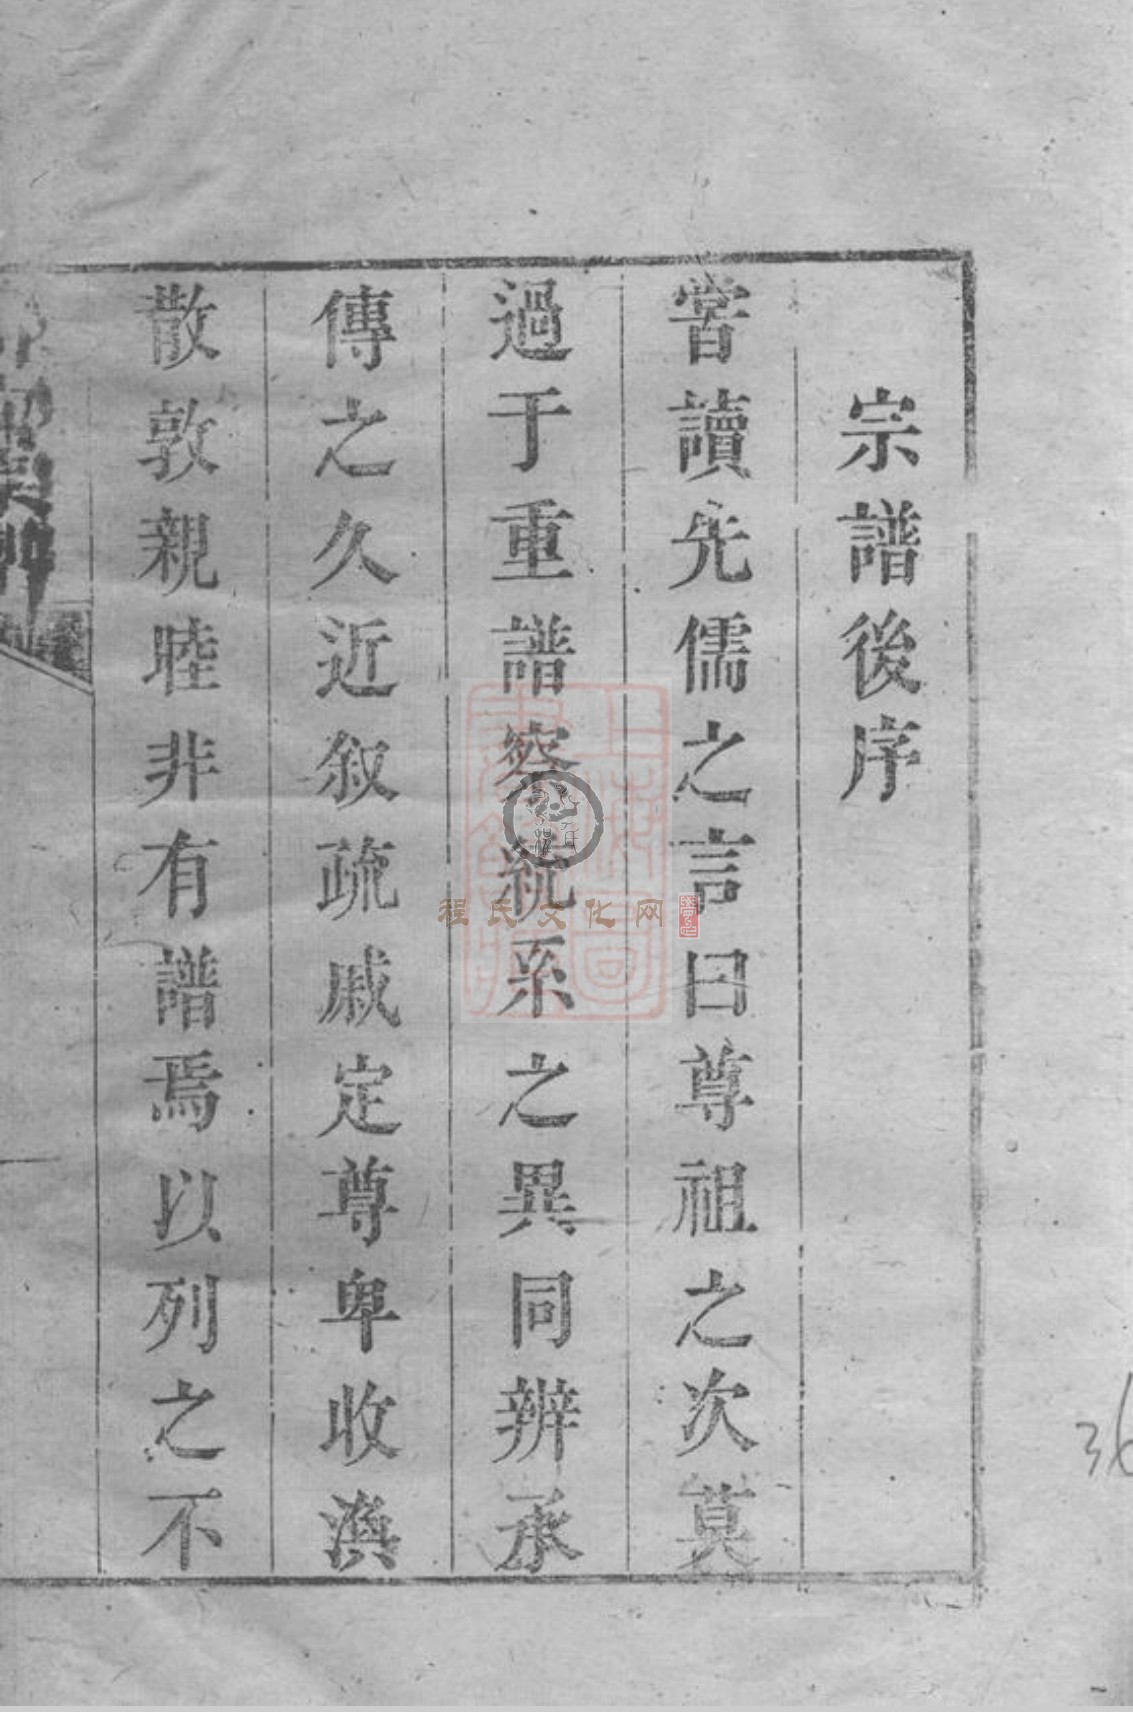 宗譜後序
甞讀先儒之言曰尊祖之次莫
過于重譜察統系之異同辨承
傳之久近叙疏戚定尊卑收渙
散敦親睦非有譜焉以列之不
程氏文化网
36